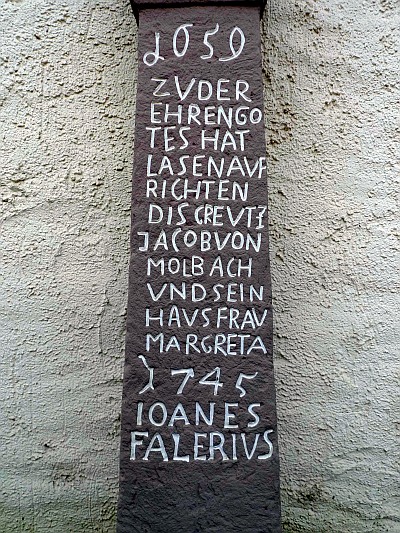 1059
ZVDER
EHRENGO
TES HAT
LASENAVF
RICHTEN
DIS CREVTZ
JACOBVON
MOLBACH
VNDSEIN
HAVSFRAV
MARGRETA
1745
IOANES
FALERIVS